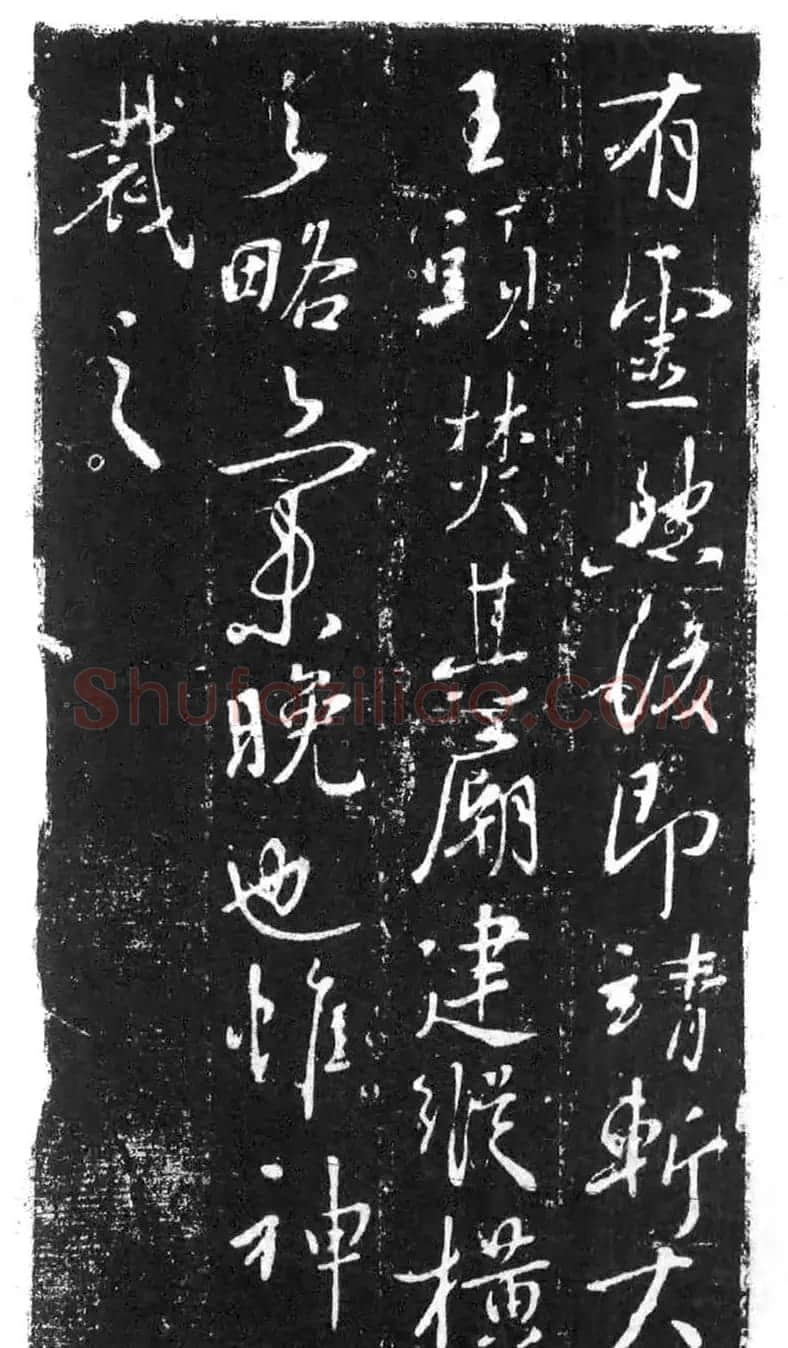 有靈然後即靖斬大
王頭焚其廟建縱橫
之略之未晚也惟神
裁之
Shufaziliao.COM